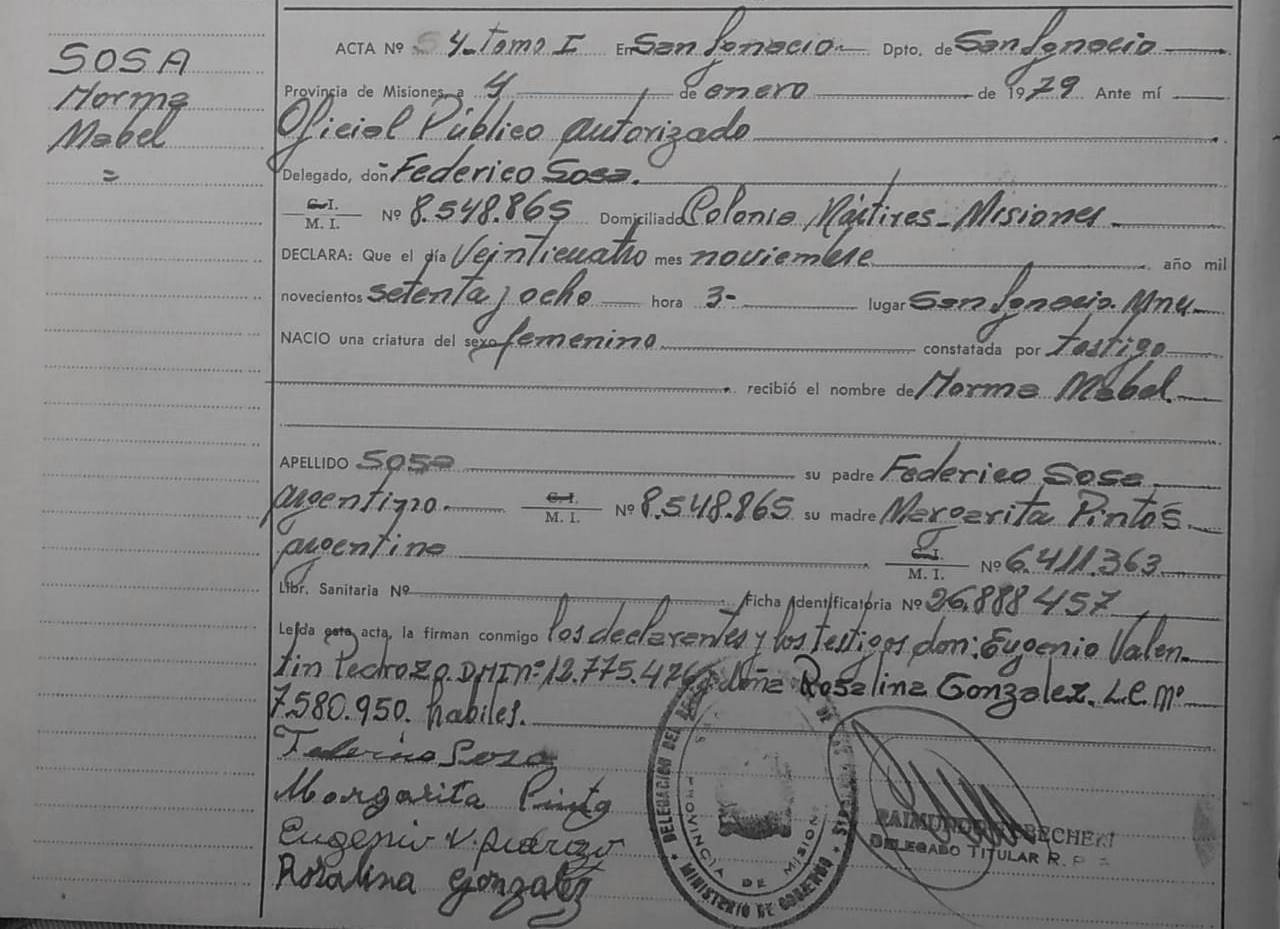 SOSA
Norma
Mabel
=
ACTA Nº 4-Tomo I En San Ignacio Dpto. de San Ignacio
Provincia de Misiones, a 4 de enero de 1979 Ante mí
Oficial Público autorizado
Delegado, don Federico Sosa.
C. I.
M. I. Nº 8.548.865 Domiciliado Colonia Mártires-Misiones
DECLARA: Que el día Veinticuatro mes noviembre año mil
novecientos setenta y ocho hora 3- lugar San Ignacio. Mnes
NACIO una criatura del sexo femenino constatada por testigo
recibió el nombre de Norma Mabel.
APELLIDO Sosa su padre Federico Sosa
argentino C. I. M. I. Nº 8.548.865 su madre Margarita Pintos
argentina C. I. M. I. Nº 6.411.363
Libr. Sanitaria Nº Ficha Identificatoria Nº 26.888.457
Leída esta acta, la firman conmigo los declarantes y los testigos don: Eugenio Valen-
tin Pedrozo. DNI nº 12.775.426 y doña Rosalina Gonzalez. L.C. Nº
7.580.950. habiles.
Federico Sosa
Margarita Pinto
Eugenio V. Pedrozo
Rosalina Gonzalez
DELEGACION DEL
PROVINCIA DE MISIONES
MINISTERIO DE GOBIERNO
RAIMUNDO
DELEGADO TITULAR R. P.